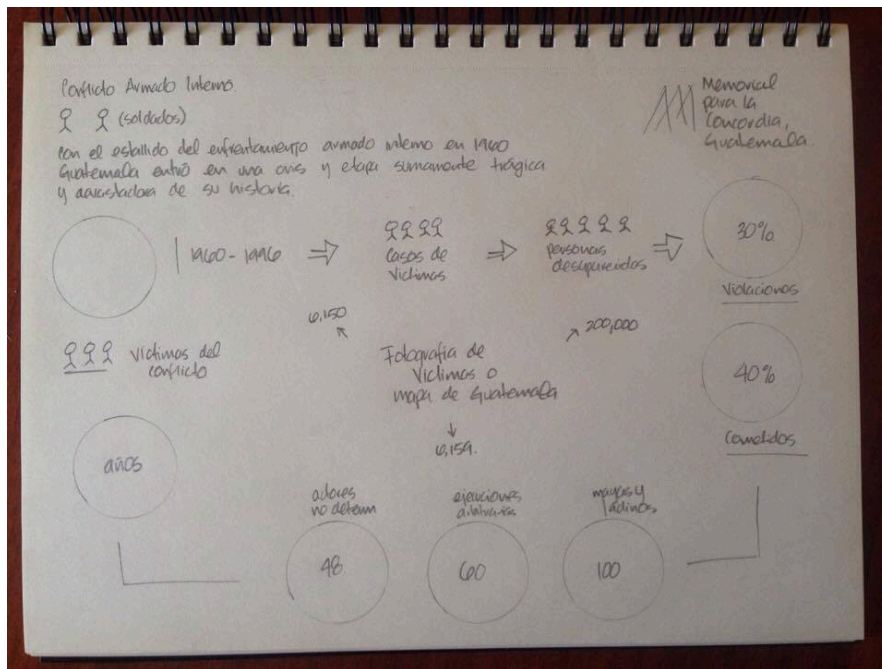 Conflicto Armado Interno
(soldados)
Con el estallido del enfrentamiento armado interno en 1960
Guatemala entró en una crisis y etapa sumamente trágica
y devastadora de su historia.
Memorial
para la
Concordia,
Guatemala.
1960-1996
Casos de
Victimas
personas
desaparecidas
30%
Violaciones
6,150
200,000
Víctimas del
conflicto
Fotografía de
Victimas o
mapa de Guatemala
6,159.
40%
Cometidos
años
actores
no determ
48
ejecuciones
arbitrarias
60
mayas y
ladinos
100